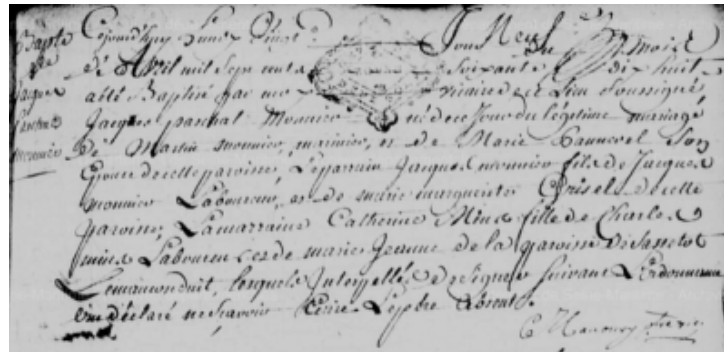 Bapte de Jaques Paschal monnier
Ce jourdhuy Lundy Vingt Jour Neuf du mois
de Avril mil sept cents soixante dix huit
a été Baptisé par moy vicaire de ce Lieu soussigné
Jacques paschal Monnier né de ce Jour du légitime mariage
de Martin monnier, marinier, et de Marie Son
Epouse de cette paroisse, Le parrain Jacques monnier fils de Jacques
monnier Laboureur, et de marie marguerite Grisel de cette
paroisse, La marraine Catherine Mins fille de Charles
mins Laboureur et de marie Jeanne de la paroisse de Sassetot
Lemauconduit, lesquels Interpellés de signer suivant L'ordonnance
ont déclaré ne scavoir Ecrire Le père absent.